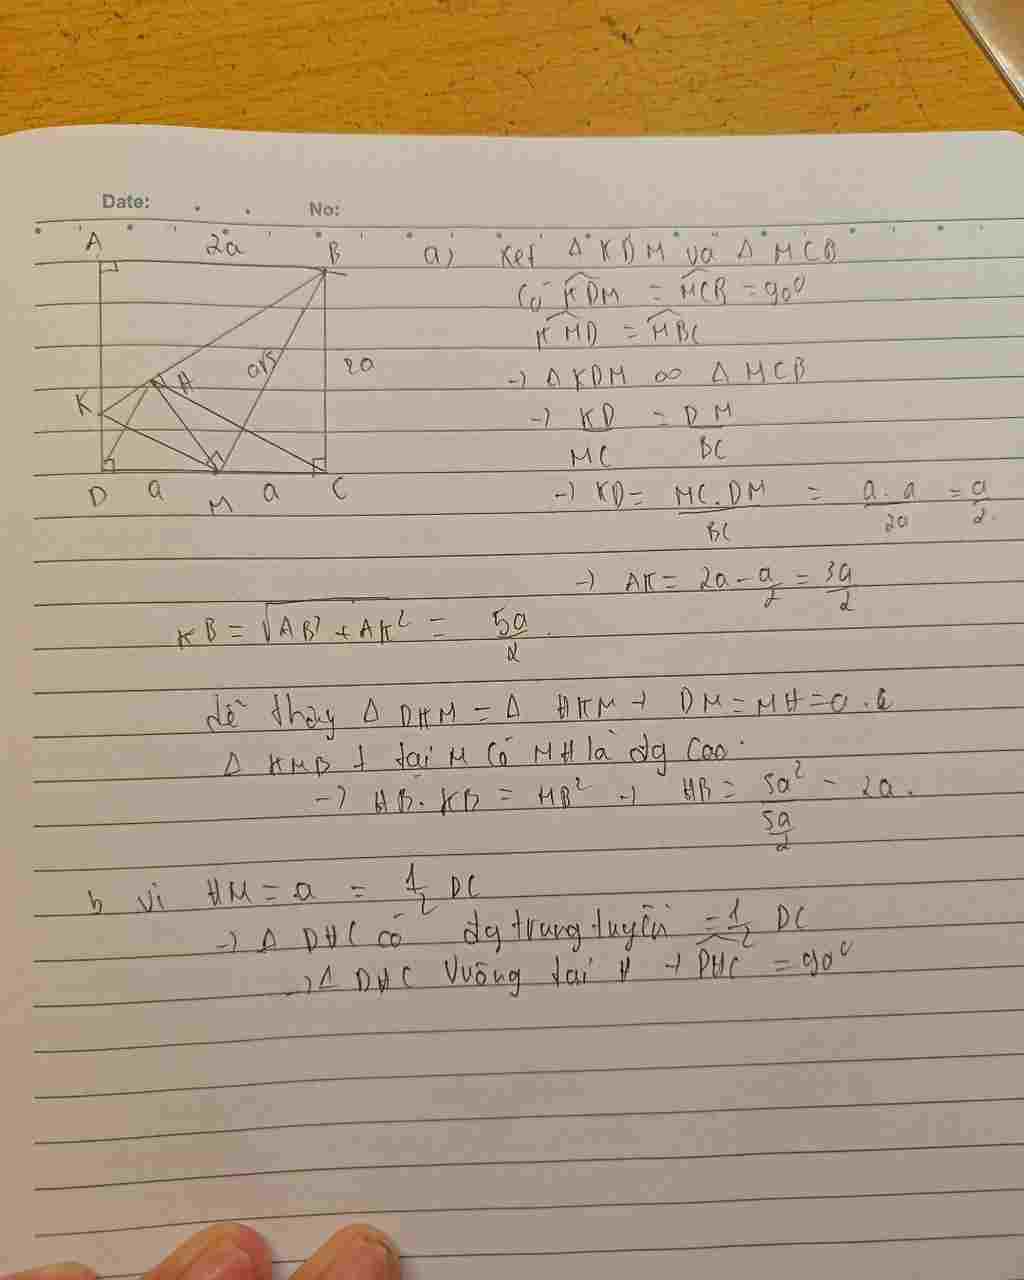 Date:
No:
A 2a B
K H a√5 2a
D a M a C
a) Xét Δ KDM và Δ MCB
Có KDM = MCB = 90⁰
KMD = MBC
→ Δ KDM ∞ Δ MCB
→ KD/MC = DM/BC
→ KD = MC.DM/BC = a.a/2a = a/2.
→ AK = 2a - a/2 = 3a/2
KB = √AB² + AK² = 5a/2.
dễ thấy Δ DKM = Δ HKM → DM = MH = a.
Δ KMB ⊥ tại M có MH là đg cao.
→ HB.KB = MB² → HB = 5a²/5a/2 - 2a.
b vì HM = a = 1/2 DC
→ Δ DHC có đg trung tuyến = 1/2 DC
→ Δ DHC vuông tại H → DHC = 90⁰